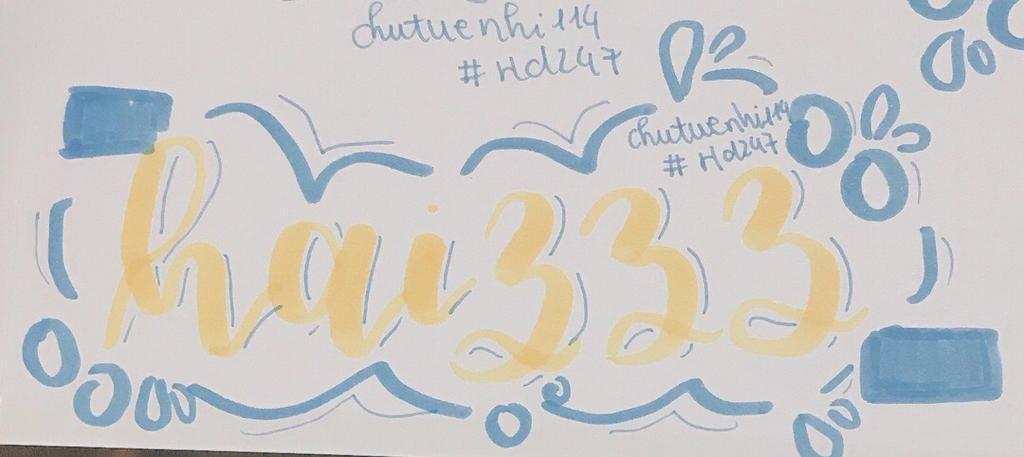 chutuenhi114
#Hd247
chutuenhi114
#Hd247
haizzz